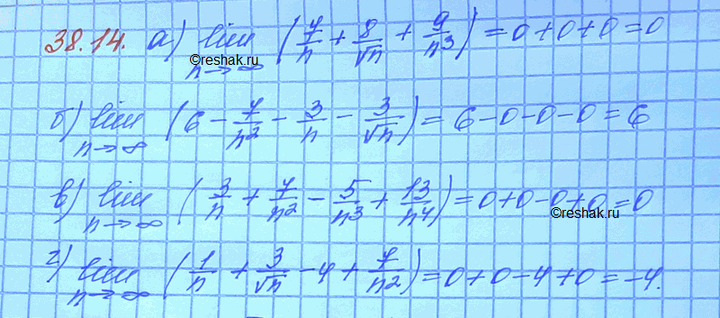 38.14. а) lim n→∞ (7/n + 8/√n + 9/n³) = 0+0+0=0
©reshak.ru
б) lim n→∞ (6 − 7/n² − 3/n − 3/√n) = 6−0−0−0=6
в) lim n→∞ (3/n + 7/n² − 5/n³ + 13/n⁴) = 0+0−0+0=0
©reshak.ru
г) lim n→∞ (1/n + 3/√n − 4 + 7/n²) = 0+0−4+0=−4.
©reshak.ru